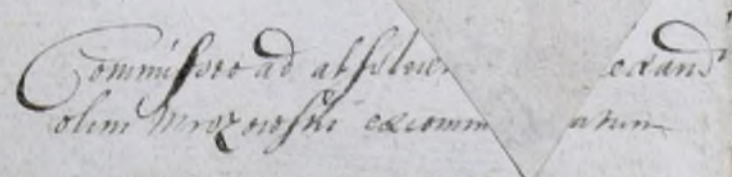 Commissio ad absolven
olim Mrozowski excomm atum